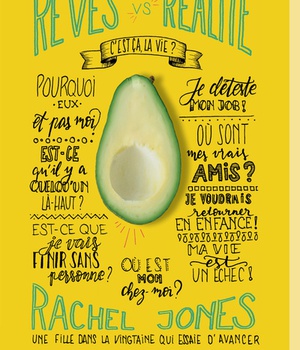 RÊVES VS RÉALITÉ
C'EST ÇA, LA VIE ?
POURQUOI
EUX
et pas moi?
EST-CE
qu'il y a
QUELQU'UN
LÀ-HAUT ?
EST-CE QUE
je vais
FINIR SANS
personne?
OÙ EST
MON
chez-moi?
Je déteste
MON JOB!
OÙ SONT
mes vrais
AMIS?
JE VOUDRAIS
retourner
EN ENFANCE!
MA VIE
est
UN ÉCHEC!
RACHEL JONES
UNE FILLE DANS LA VINGTAINE QUI ESSAIE D'AVANCER